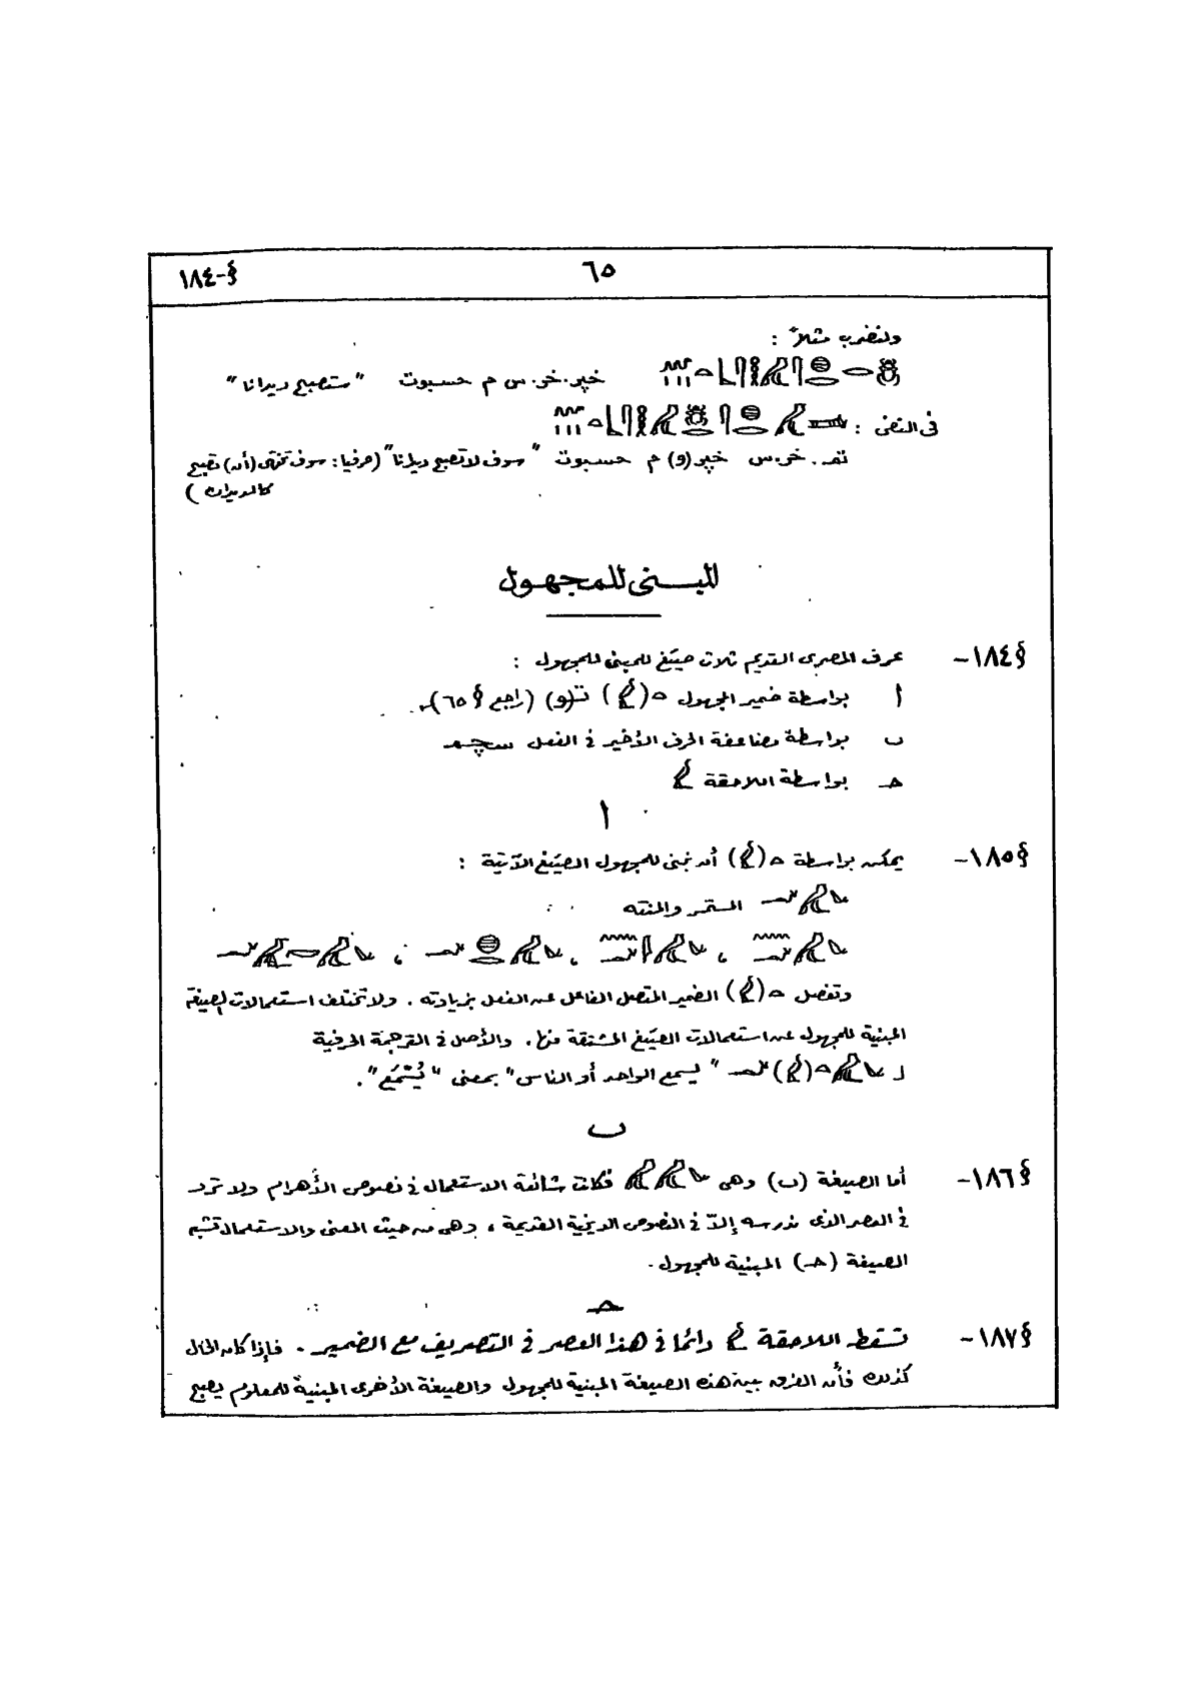 §-١٨٤
٦٥
ولنضرب مثلاً :
خپر.خر.س م حسبوت "ستصبح ديدانا"
فى النفى :
تم. خر.س خپر(و) م حسبوت "سوف لا تصبح ديدانا" (حرفيا: سوف تنتهى (أن) تصبح
كالديدان)
المبنى للمجهول
§١٨٤- عرف المصرى القديم ثلاث صيَغ للمبنى للمجهول :
ا بواسطة ضمير المجهول ت(و) (راجع §٦٥).
ب بواسطة مضاعفة الحرف الأخير فى الفعل سچم
حـ بواسطة اللاحقة
ا
§١٨٥- يمكن بواسطة أن نبنى للمجهول الصيَغ الآتية :
المستمر والمنته
وتفصل الضمير المتصل الفاعل عن الفعل بزيادته . ولا تختلف استعمالات الصيغة
المبنية للمجهول عن استعمالات الصيَغ المشتقة منها . والأصل فى الترجمة الحرفية
لـ "ليسمع الواحد أو الناس" بمعنى "يُسْمَع".
ب
§١٨٦- أما الصيغة (ب) وهى فكانت شائعة الاستعمال فى نصوص الأهرام ولا ترد
فى العصر الذى ندرسه إلّا فى النصوص الدينية القديمة ، وهى من حيث المعنى والاستعمال تشبه
الصيغة (حـ) المبنية للمجهول.
حـ
§١٨٧- تسقط اللاحقة دائما فى هذا العصر فى التصريف مع الضمير . فإذا كان الحال
كذلك فأن الفرق بين هذه الصيغة المبنية للمجهول والصيغة الأخرى المبنية للمعلوم يصبح